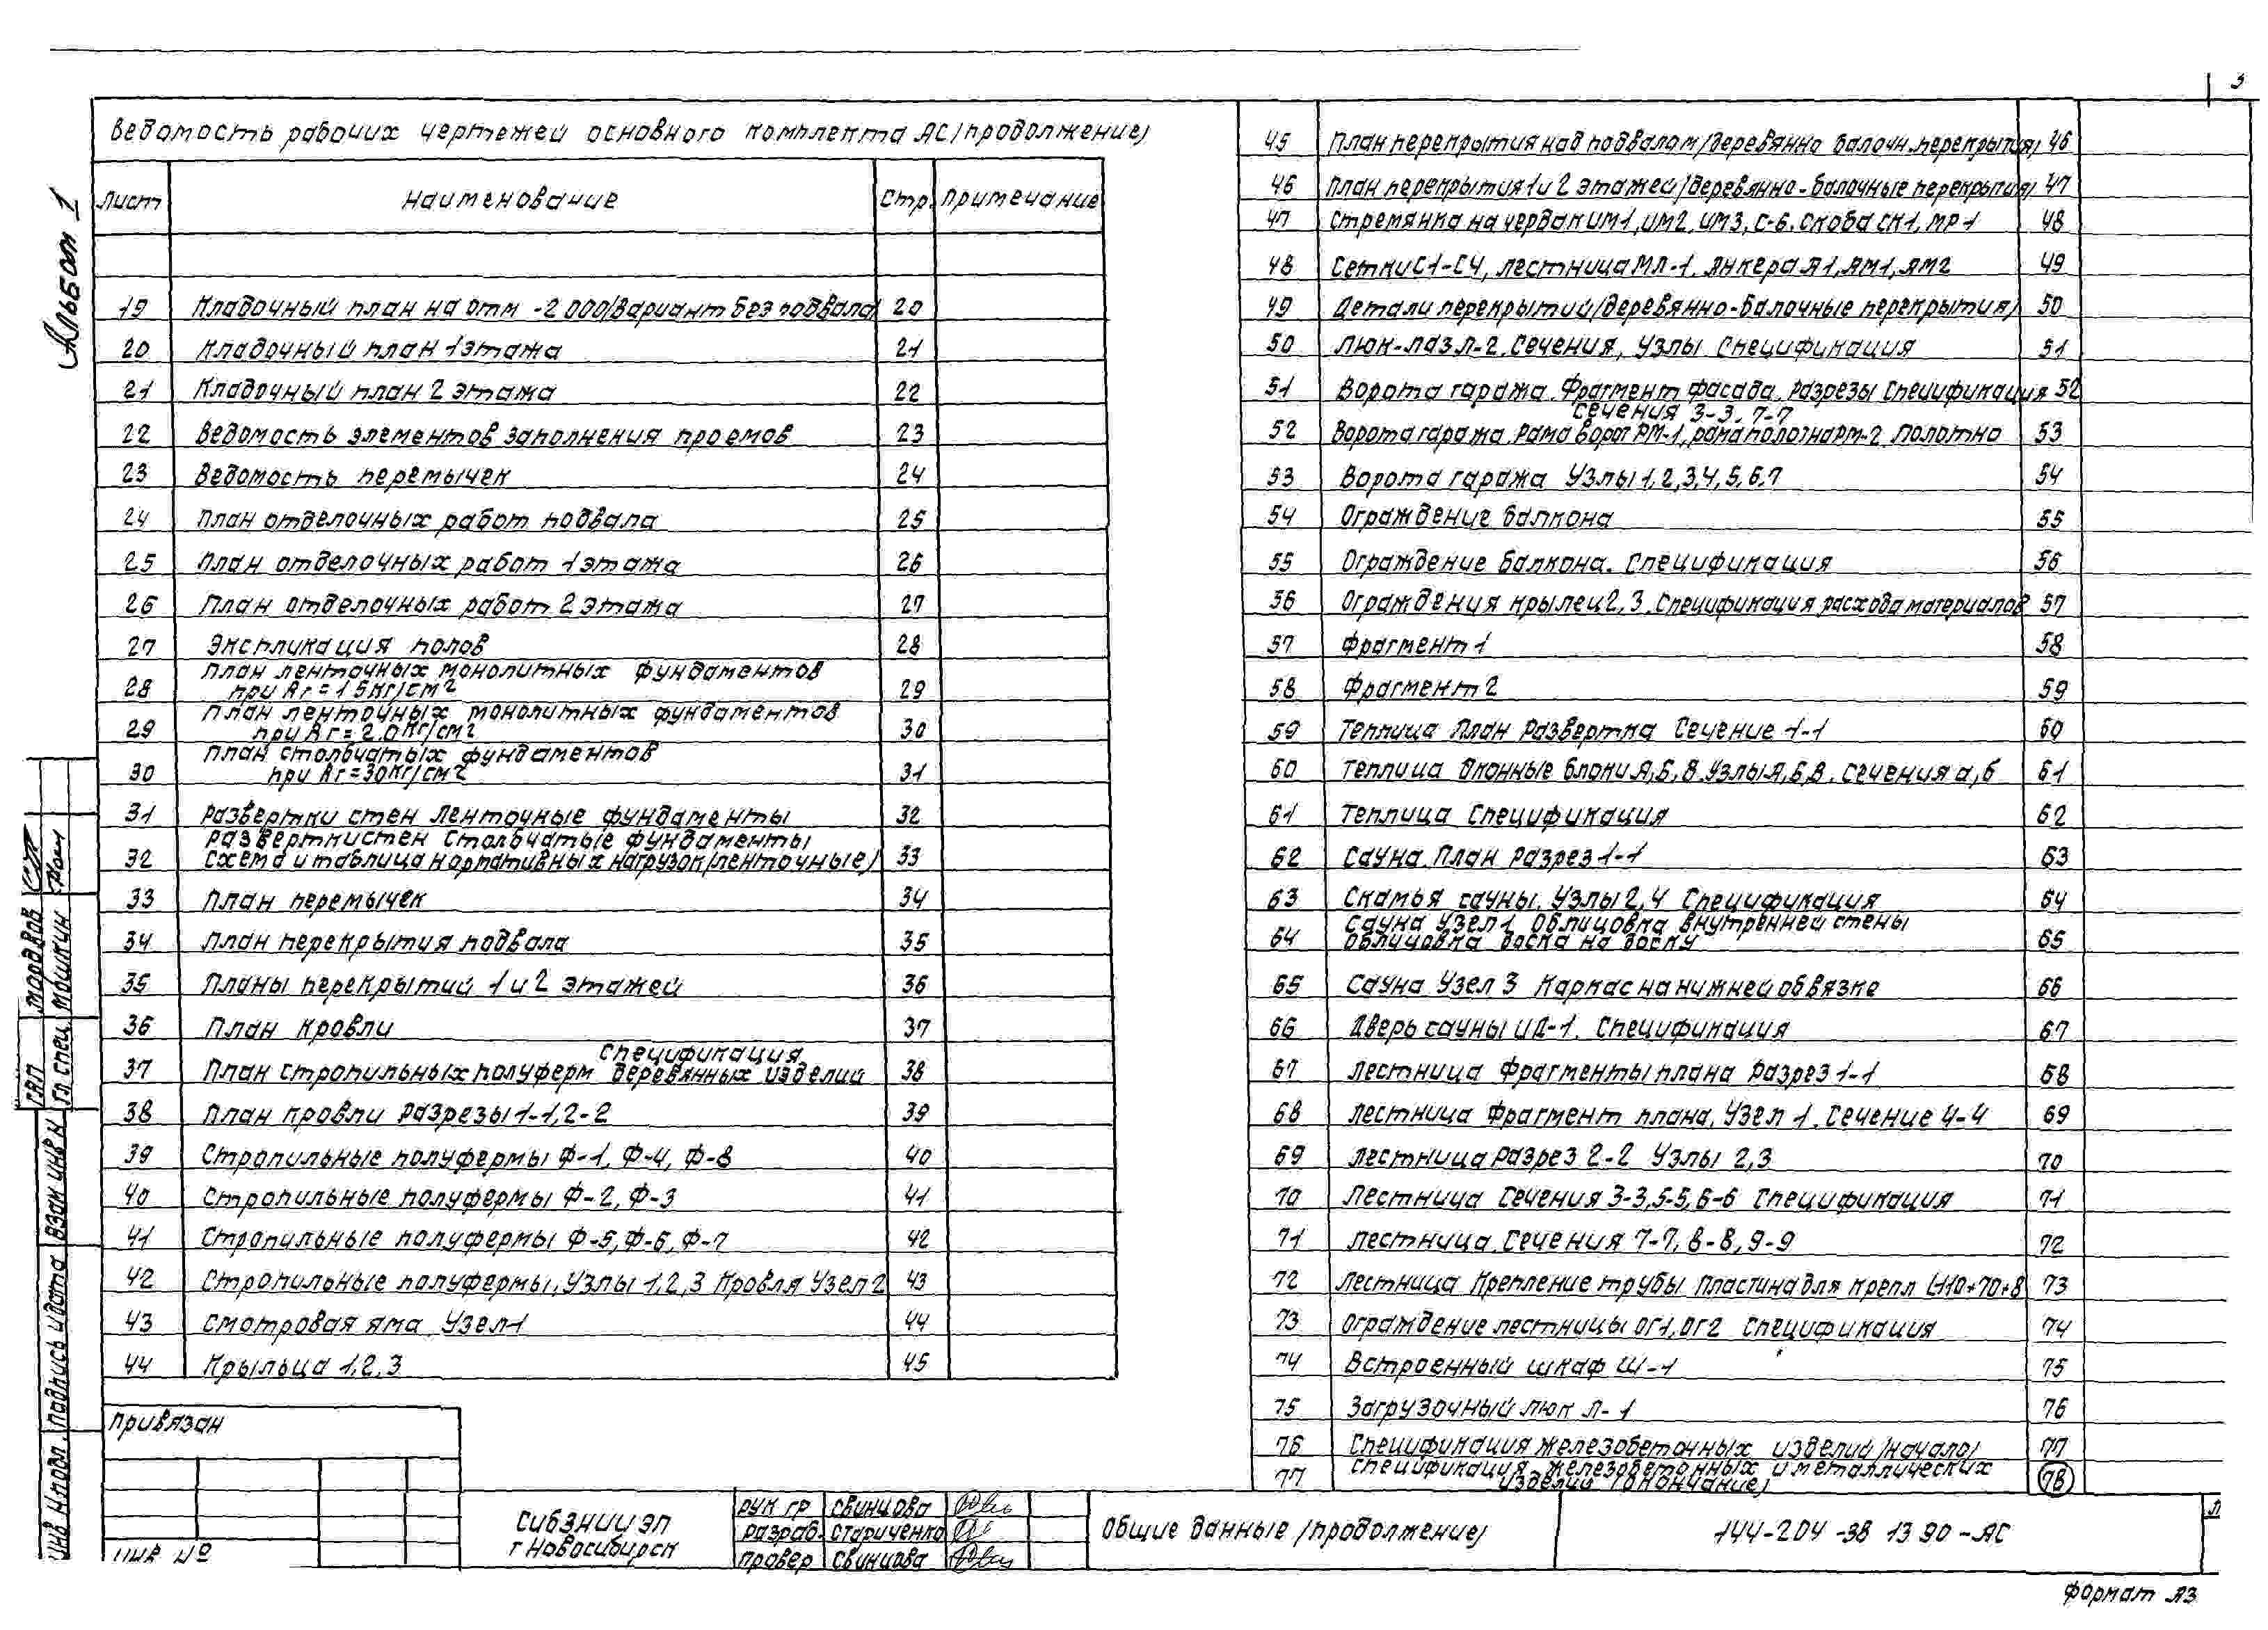 3
Альбом 1
Ведомость рабочих чертежей основного комплекта АС/продолжение/
Лист Наименование Стр. Примечание
19 Кладочный план на отм -2 000/вариант без подвала/ 20
20 Кладочный план 1 этажа 21
21 Кладочный план 2 этажа 22
22 Ведомость элементов заполнения проемов 23
23 Ведомость перемычек 24
24 План отделочных работ подвала 25
25 План отделочных работ 1 этажа 26
26 План отделочных работ 2 этажа 27
27 Экспликация полов 28
28 План ленточных монолитных фундаментов 29
при Rг=1 5кг/см2
29 План ленточных монолитных фундаментов 30
при Rг=2.0кг/см2
30 План столбчатых фундаментов 31
при Rг=30кг/см2
31 Развертки стен Ленточные фундаменты 32
32 Развертки стен Столбчатые фундаменты 33
Схема и таблица нормативных нагрузок/ленточные/
33 План перемычек 34
34 План перекрытия подвала 35
35 Планы перекрытий 1 и 2 этажей 36
36 План кровли 37
37 План стропильных полуферм Спецификация деревянных изделий 38
38 План кровли Разрезы 1-1, 2-2 39
39 Стропильные полуфермы Ф-1, Ф-4, Ф-8 40
40 Стропильные полуфермы Ф-2, Ф-3 41
41 Стропильные полуфермы Ф-5, Ф-6, Ф-7 42
42 Стропильные полуфермы, Узлы 1, 2, 3 Кровля Узел 2 43
43 Смотровая яма Узел 1 44
44 Крыльца 1, 2, 3 45
45 План перекрытия над подвалом/деревянно балочн. перекрытия/ 46
46 План перекрытия 1 и 2 этажей/деревянно-балочные перекрытия/ 47
47 Стремянка на чердак ИМ1, ИМ2, ИМ3, С-6. Скоба СК1, МР1 48
48 Сетки С1-С4, лестница МЛ-1. Анкера А1, АМ1, АМ2 49
49 Детали перекрытий/деревянно-балочные перекрытия/ 50
50 Люк-лаз Л-2. Сечения, Узлы Спецификация 51
51 Ворота гаража. Фрагмент фасада. Разрезы Спецификация 52
Сечения 3-3, 7-7
52 Ворота гаража. Рама ворот РМ-1, рама полотна РМ-2 Полотно 53
53 Ворота гаража Узлы 1, 2, 3, 4, 5, 6, 7 54
54 Ограждение балкона 55
55 Ограждение балкона. Спецификация 56
56 Ограждения крылец 2, 3. Спецификация расхода материалов 57
57 Фрагмент 1 58
58 Фрагмент 2 59
59 Теплица План Развертка Сечение 1-1 60
60 Теплица Оконные блоки А, Б, В. Узлы А, Б, В. Сечения а, б 61
61 Теплица Спецификация 62
62 Сауна. План Разрез 1-1 63
63 Скамья сауны. Узлы 2, 4 Спецификация 64
64 Сауна Узел 1 Облицовка внутренней стены 65
Облицовка доска на доску
65 Сауна Узел 3 Каркас на нижней обвязке 66
66 Дверь сауны ИД-1. Спецификация 67
67 Лестница Фрагменты плана Разрез 1-1 68
68 Лестница Фрагмент плана, Узел 1. Сечение 4-4 69
69 Лестница Разрез 2-2 Узлы 2, 3 70
70 Лестница Сечения 3-3, 5-5, 6-6 Спецификация 71
71 Лестница. Сечения 7-7, 8-8, 9-9 72
72 Лестница Крепление трубы Пластина для крепл 73
73 Ограждение лестницы ОГ1, ОГ2 Спецификация 74
74 Встроенный шкаф Ш-1 75
75 Загрузочный люк Л-1 76
76 Спецификация железобетонных изделий/начало/ 77
77 Спецификация железобетонных и металлических 78
изделий /окончание/
Привязан
Инв №
СибЗНИИЭП
г Новосибирск
Рук гр Свинцова
Разраб. Стариченко
Провер Свинцова
Общие данные /продолжение/
144-204-38 13 90-АС
Л
Формат А3
ГАП Мордвов
Гл спец. Мошкин
Инв № подл. Подпись и дата Взам инв №